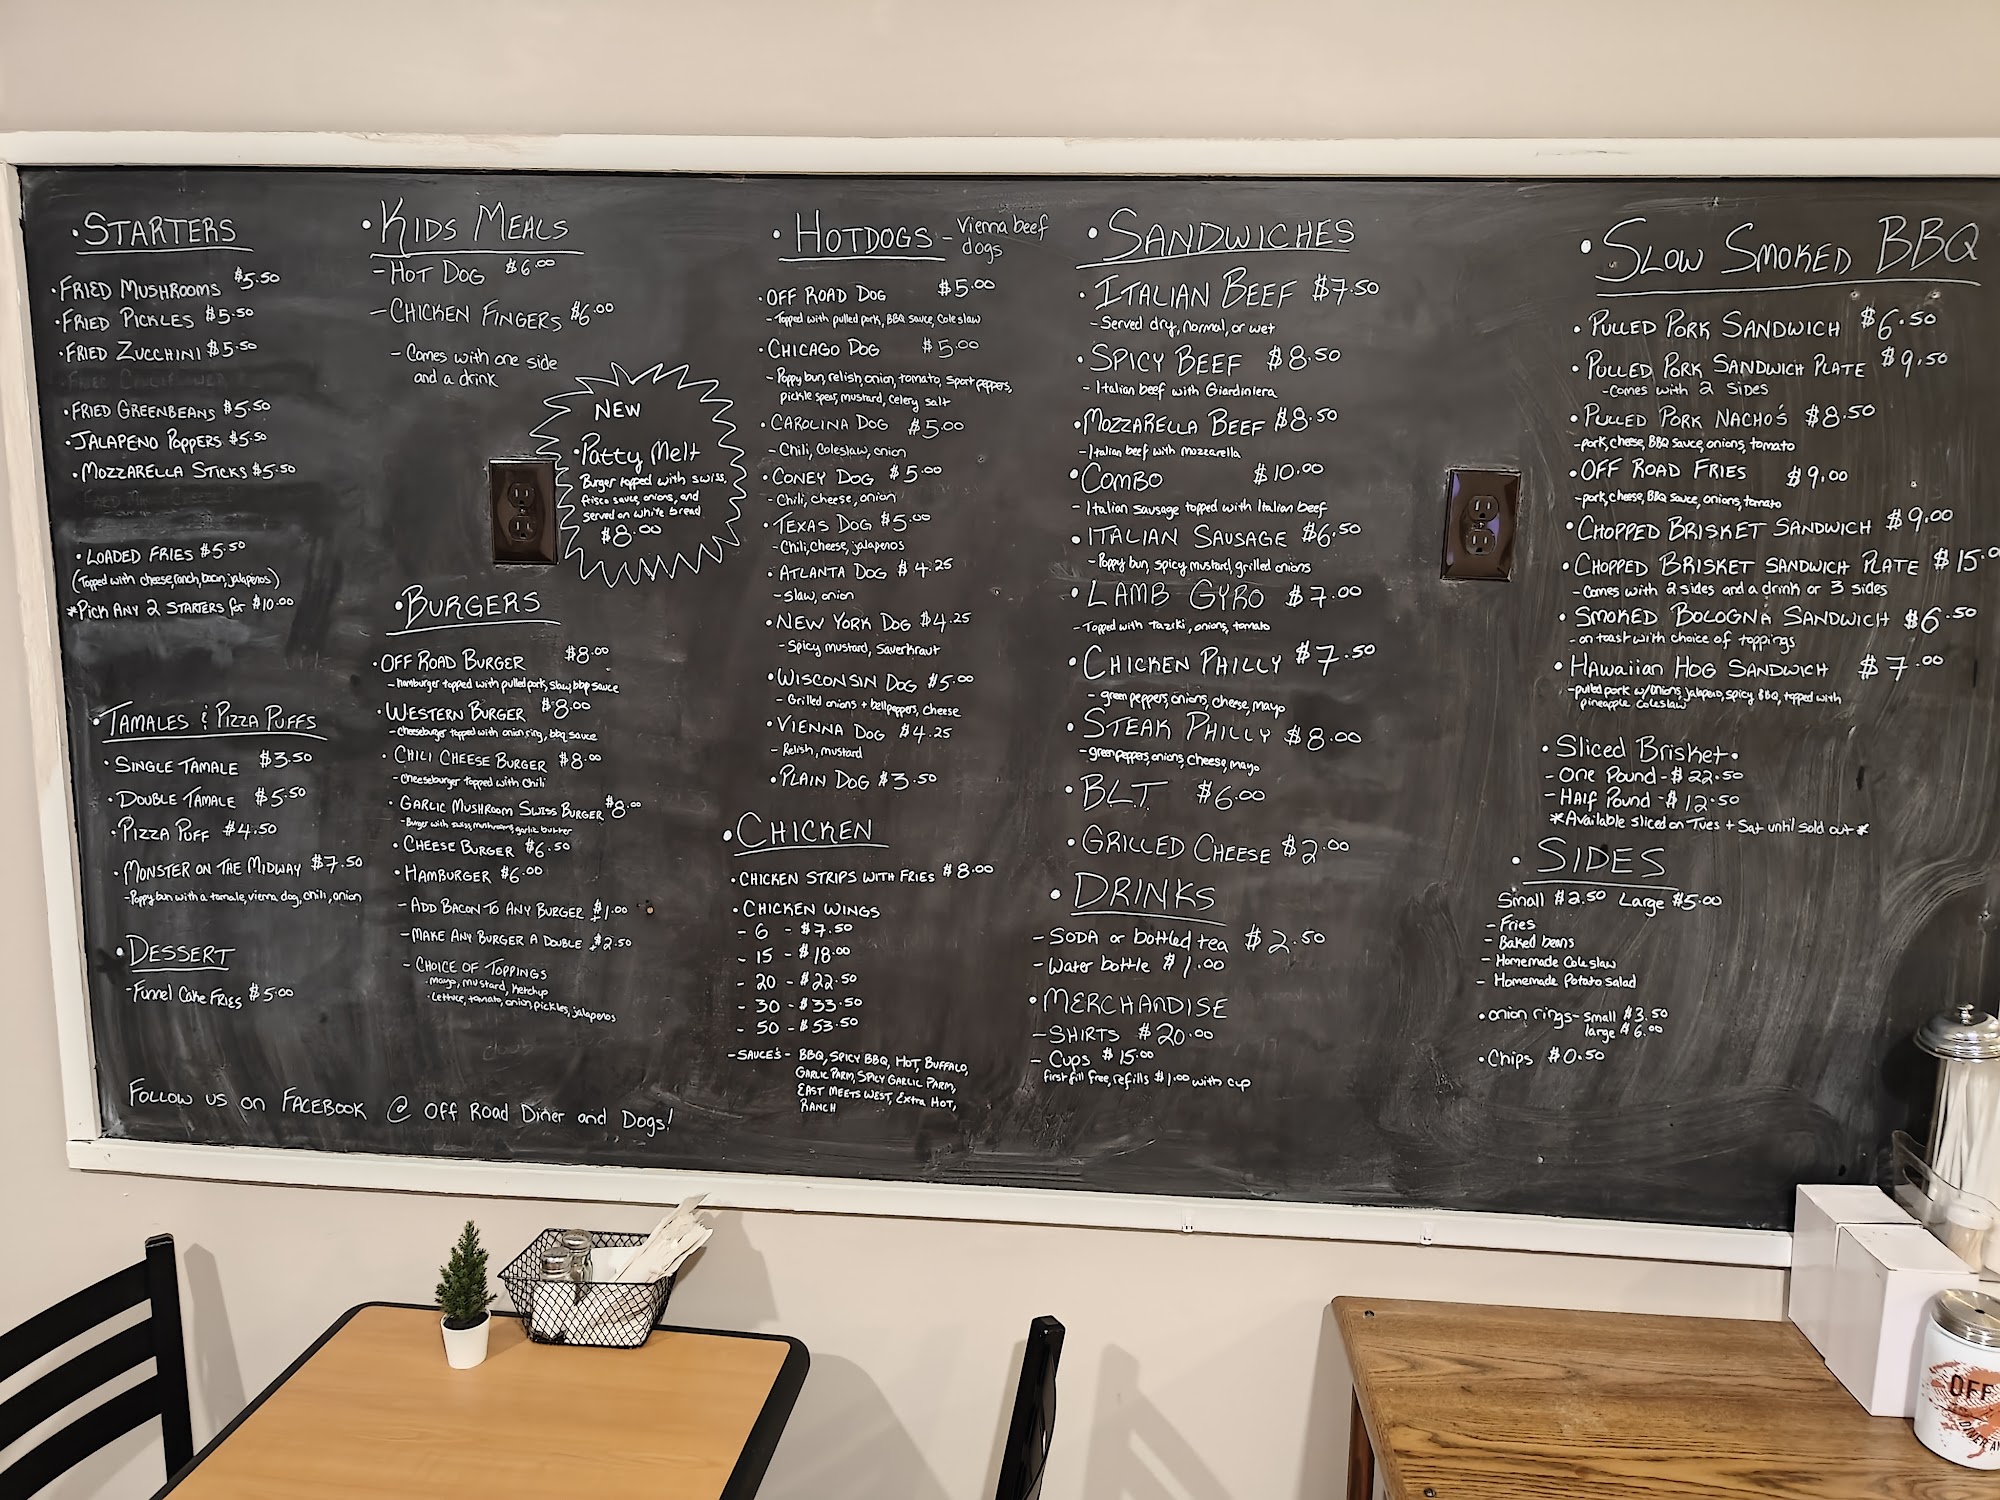 • STARTERS
• FRIED MUSHROOMS $5.50
• FRIED PICKLES $5.50
• FRIED ZUCCHINI $5.50
FRIED CAULIFLOWER
• FRIED GREENBEANS $5.50
• JALAPENO POPPERS $5.50
• MOZZARELLA STICKS $5.50
• LOADED FRIES $5.50
(Topped with cheese, ranch, bacon, jalapenos)
*PICK ANY 2 STARTERS for $10.00
• TAMALES & PIZZA PUFFS
• SINGLE TAMALE $3.50
• DOUBLE TAMALE $5.50
• PIZZA PUFF $4.50
• MONSTER ON THE MIDWAY $7.50
- Poppy bun with a tamale, vienna dog, chili, onion
• DESSERT
- Funnel Cake FRIES $5.00
FOLLOW US ON FACEBOOK @ Off Road Diner and Dogs!
• KIDS MEALS
- HOT DOG $6.00
- CHICKEN FINGERS $6.00
- Comes with one side
and a drink
NEW
• Patty Melt
Burger topped with swiss,
frisco sauce, onions, and
served on white bread
$8.00
• BURGERS
• OFF ROAD BURGER $8.00
- hamburger topped with pulled pork, slaw, bbp sauce
• WESTERN BURGER $8.00
- cheeseburger topped with onion ring, bbq sauce
• CHILI CHEESE BURGER $8.00
- Cheeseburger topped with Chili
• GARLIC MUSHROOM SWISS BURGER $8.00
- Burger with swiss, mushrooms, garlic butter
• CHEESE BURGER $6.50
• HAMBURGER $6.00
- ADD BACON TO ANY BURGER $1.00
- MAKE ANY BURGER A DOUBLE +$2.50
- CHOICE OF TOPPINGS
• mayo, mustard, ketchup
• lettuce, tomato, onion, pickles, jalapenos
• HOTDOGS - Vienna beef
dogs
• OFF ROAD DOG $5.00
- Topped with pulled pork, BBQ sauce, Coleslaw
• CHICAGO DOG $5.00
- Poppy bun, relish, onion, tomato, sport peppers,
pickle spear, mustard, celery salt
• CAROLINA DOG $5.00
- Chili, Coleslaw, onion
• CONEY DOG $5.00
- Chili, cheese, onion
• TEXAS DOG $5.00
- Chili, Cheese, jalapenos
• ATLANTA DOG $4.25
- Slaw, onion
• NEW YORK DOG $4.25
- Spicy mustard, Sauerkraut
• WISCONSIN DOG $5.00
- Grilled onions + bell peppers, cheese
• VIENNA DOG $4.25
- Relish, mustard
• PLAIN DOG $3.50
• CHICKEN
• CHICKEN STRIPS WITH FRIES $8.00
• CHICKEN WINGS
- 6 - $7.50
- 15 - $18.00
- 20 - $22.50
- 30 - $33.50
- 50 - $53.50
- SAUCE'S - BBQ, SPICY BBQ, HOT, BUFFALO,
GARLIC PARM, SPICY GARLIC PARM,
EAST MEETS WEST, EXTRA HOT,
RANCH
• SANDWICHES
• ITALIAN BEEF $7.50
- Served dry, normal, or wet
• SPICY BEEF $8.50
- Italian beef with Giardiniera
• MOZZARELLA BEEF $8.50
- Italian beef with mozzarella
• COMBO $10.00
- Italian sausage topped with Italian beef
• ITALIAN SAUSAGE $6.50
- Poppy bun, spicy mustard, grilled onions
• LAMB GYRO $7.00
- Topped with Taziki, onions, tomato
• CHICKEN PHILLY $7.50
- green peppers, onions, cheese, mayo
• STEAK PHILLY $8.00
- green peppers, onions, cheese, mayo
• BLT $6.00
• GRILLED CHEESE $2.00
• DRINKS
- SODA or bottled tea $2.50
- Water bottle $1.00
• MERCHANDISE
- SHIRTS $20.00
- Cups $15.00
first fill free, refills $1.00 with cup
• SLOW SMOKED BBQ
• PULLED PORK SANDWICH $6.50
• PULLED PORK SANDWICH PLATE $9.50
- Comes with 2 SIDES
• PULLED PORK NACHO'S $8.50
- pork, cheese, BBQ sauce, onions, tomato
• OFF ROAD FRIES $9.00
- pork, cheese, BBQ sauce, onions, tomato
• CHOPPED BRISKET SANDWICH $9.00
• CHOPPED BRISKET SANDWICH PLATE $15.0
- Comes with 2 sides and a drink or 3 sides
• SMOKED BOLOGNA SANDWICH $6.50
- on toast with choice of toppings
• HAWAIIAN HOG SANDWICH $7.00
- pulled pork w/onions, jalapeno, spicy BBQ, topped with
pineapple coleslaw
• Sliced Brisket •
- One Pound - $22.50
- Half Pound - $12.50
*Available sliced on Tues + Sat until sold out*
• SIDES
Small $2.50 Large $5.00
- Fries
- Baked beans
- Homemade Coleslaw
- Homemade Potato Salad
• onion rings - small $3.50
large $6.00
• Chips $0.50
OFF